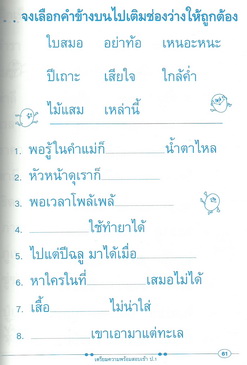 จงเลือกคำข้างบนไปเติมช่องว่างให้ถูกต้อง
ใบสมอ อย่าท้อ เหนอะหนะ
ปีเถาะ เสียใจ ใกล้ค่ำ
ไม้แสม เหล่านี้
1. พอรู้ในคำแม่ก็ น้ำตาไหล
2. หัวหน้าดุเราก็
3. พอเวลาโพล้เพล้
4. ใช้ทำยาได้
5. ไปแต่ปีฉลู มาได้เมื่อ
6. หาใครในที่ เสมอไม่ได้
7. เสื้อ ไม่น่าใส่
8. เขาเอามาแต่ทะเล
เตรียมความพร้อมสอบเข้า ป.1
61